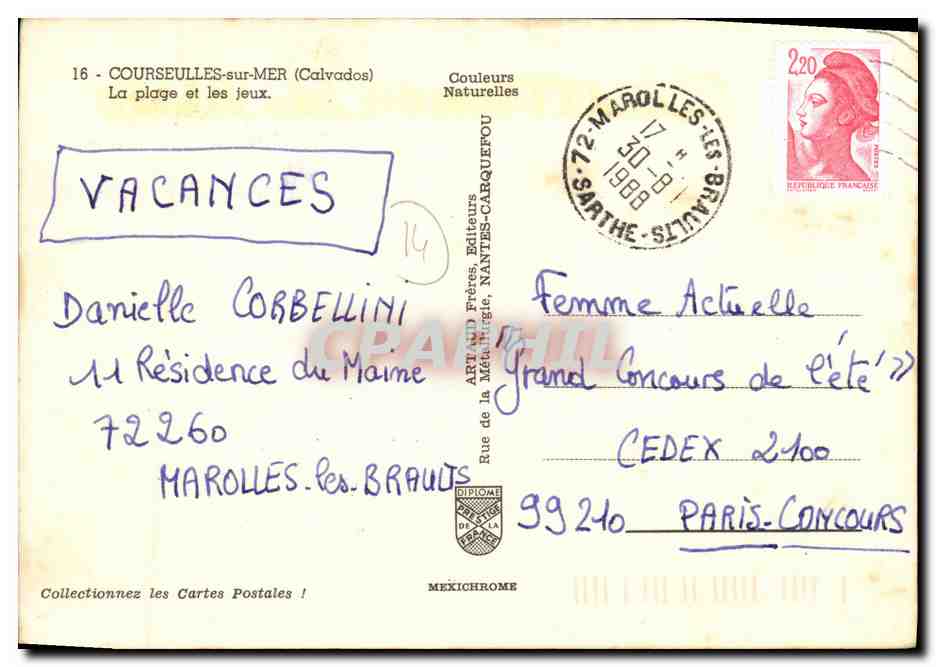 16 - COURSEULLES-sur-MER (Calvados)
La plage et les jeux.
Couleurs
Naturelles
VACANCES
14
Danielle CORBELLINI
11 Résidence du Maine
72260
MAROLLES-les-BRAULTS
ARTAUD Frères, Editeurs
Rue de la Métallurgie, NANTES-CARQUEFOU
72-MAROLLES-LES-BRAULTS
17 H
30-8
1988
SARTHE
2,20
REPUBLIQUE FRANÇAISE
Femme Actuelle
"Grand Concours de l'été"
CEDEX 2100
99210 PARIS-CONCOURS
DIPLOME
PRESTIGE
DE LA
FRANCE
MEXICHROME
Collectionnez les Cartes Postales !
CPAPHIL